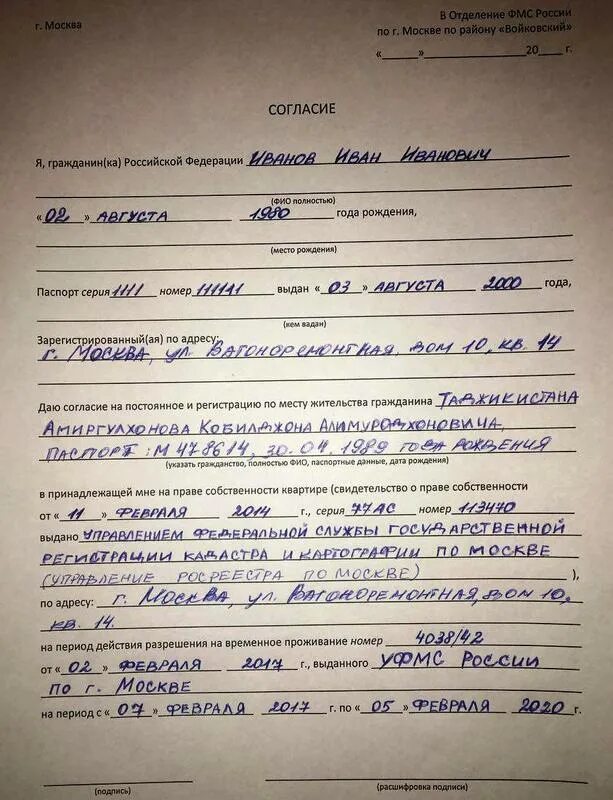 г. Москва
В Отделение ФМС России
по г. Москве по району «Войковский»
«______»____________________20____ г.
СОГЛАСИЕ
Я, гражданин(ка) Российской Федерации Иванов Иван Иванович
(ФИО полностью)
«02» августа 1980 года рождения,
(место рождения)
Паспорт серия 1111 номер 111111 выдан «03» августа 2000 года,
(кем вадан)
Зарегистрированный(ая) по адресу:
г. Москва, ул. Вагоноремонтная, дом 10, кв. 14
Даю согласие на постоянное и регистрацию по месту жительства гражданина Таджикистана
Амиргулхонова Кобилджона Алимуродхоновича.
паспорт: М 478614, 30.04.1989 года рождения
(указать гражданство, полностью ФИО, паспортные данные, дата рождения)
в принадлежащей мне на праве собственности квартире (свидетельство о праве собственности
от «11» февраля 2014 г., серия 77АС номер 113470
выдано Управлением Федеральной службы государственной
регистрации кадастра и картографии по Москве
(Управление Росреестра по Москве)),
по адресу: г. Москва, ул. Вагоноремонтная, дом 10,
кв. 14.
на период действия разрешения на временное проживание номер 4038/42
от «02» февраля 2017 г., выданного УФМС России
по г. Москве
на период с «07» февраля 2017 г. по «05» февраля 2020 г.
(подпись) (расшифровка подписи)